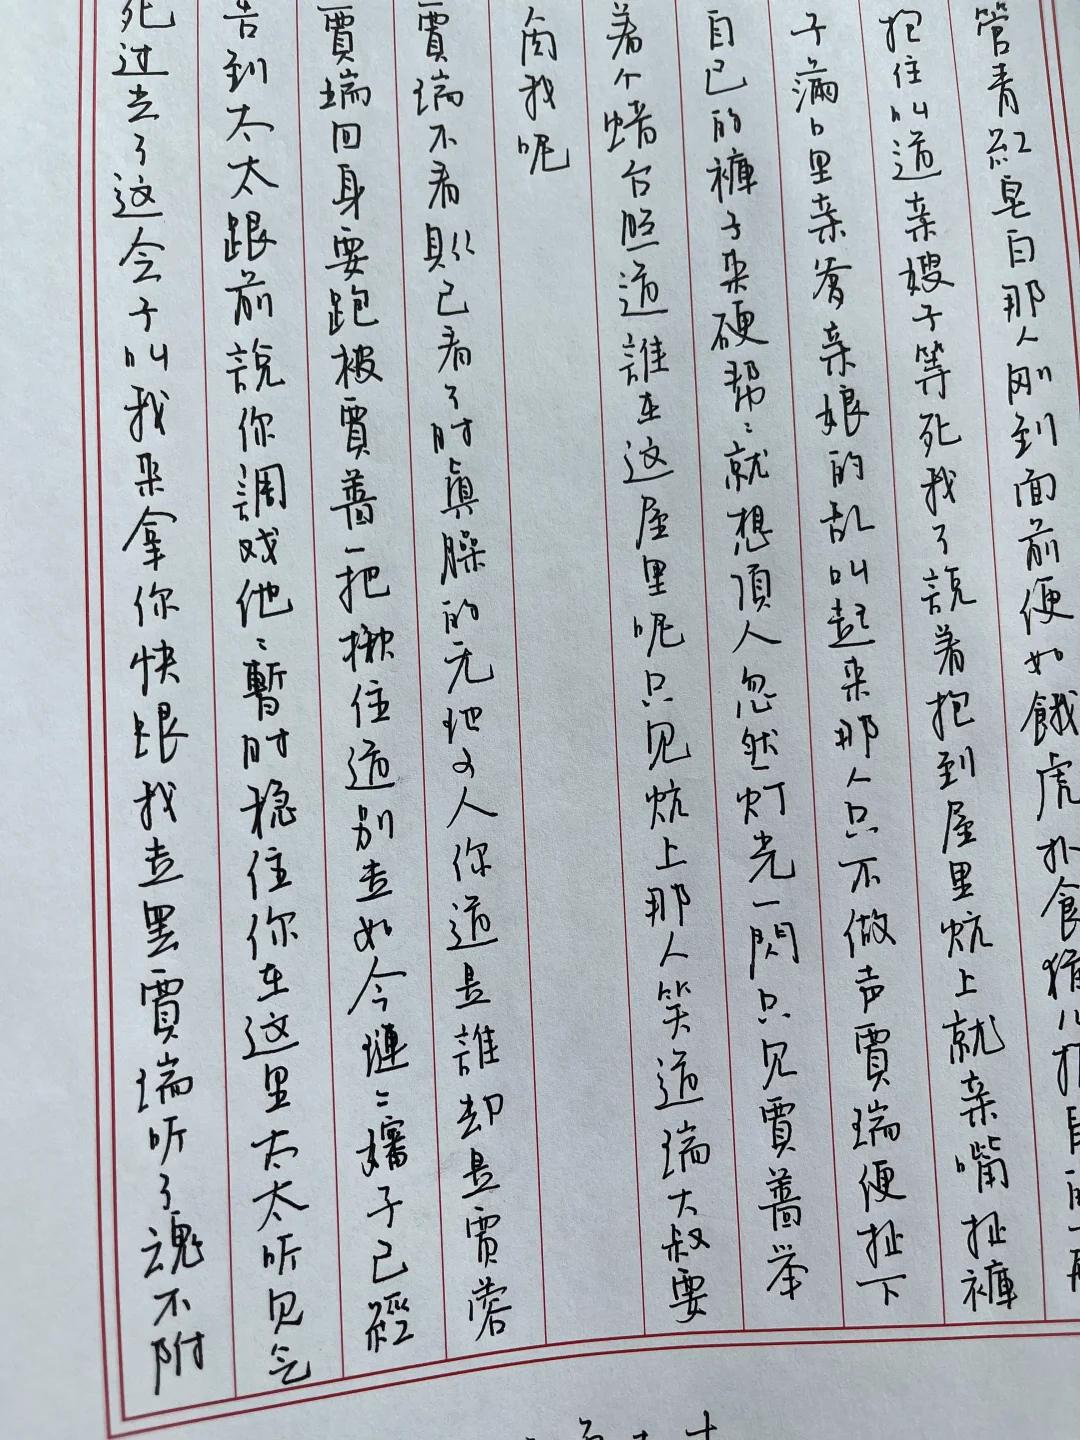 管青紅皂白那人刚到面前便如餓虎扑食猫儿捕鼠的一般
抱住叫道亲嫂子等死我了説着抱到屋里炕上就亲嘴扯褲
子滿口里亲爹亲娘的乱叫起来那人只不做声賈瑞便扯下
自己的褲子来硬帮〻就想頂人忽然灯光一閃只见賈薔举
着个蜡台照道誰在这屋里呢只见炕上那人笑道瑞大叔要
肏我呢
賈瑞不看則已看了时真臊的无地父人你道是誰却是賈蓉
賈瑞回身要跑被賈薔一把揪住道别走如今璉〻嬸子已經
告到太太跟前説你調戏他〻暫时稳住你在这里太太听见气
死过去了这会子叫我来拿你快跟我走罢賈瑞听了魂不附